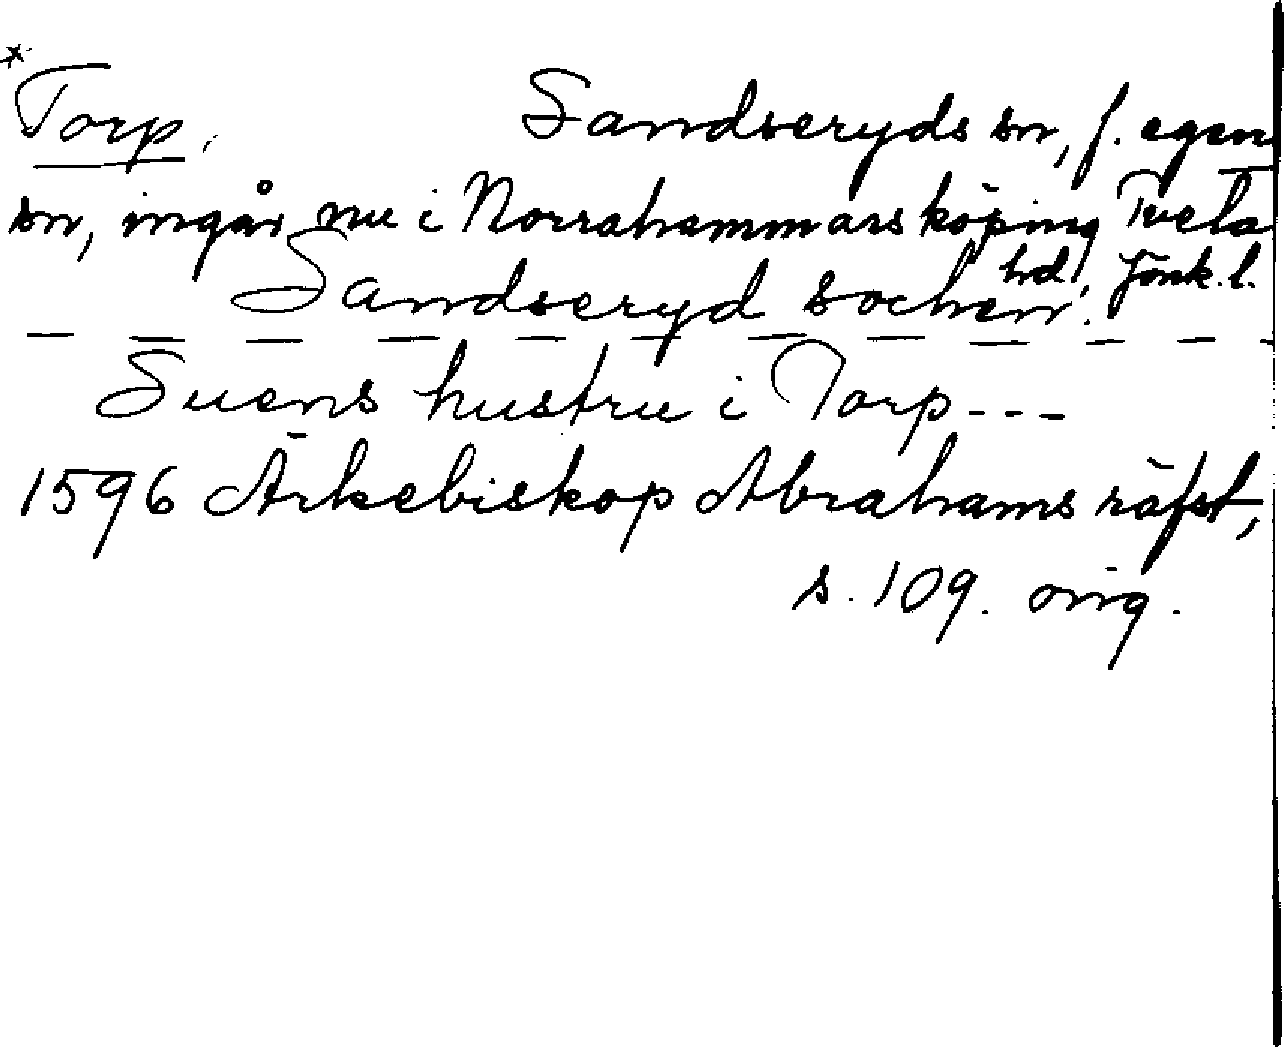 * Torp. Sandseryds sn, f. egen
sn, ingår nu i Norrahammars köping Tveta
hd, Jönk. l.
Sandseryd sochen.
— — — — — — — — — — —
Suens hustru i Torp - - -
1596 Ärkebiskop Abrahams räfst,
s. 109. orig.